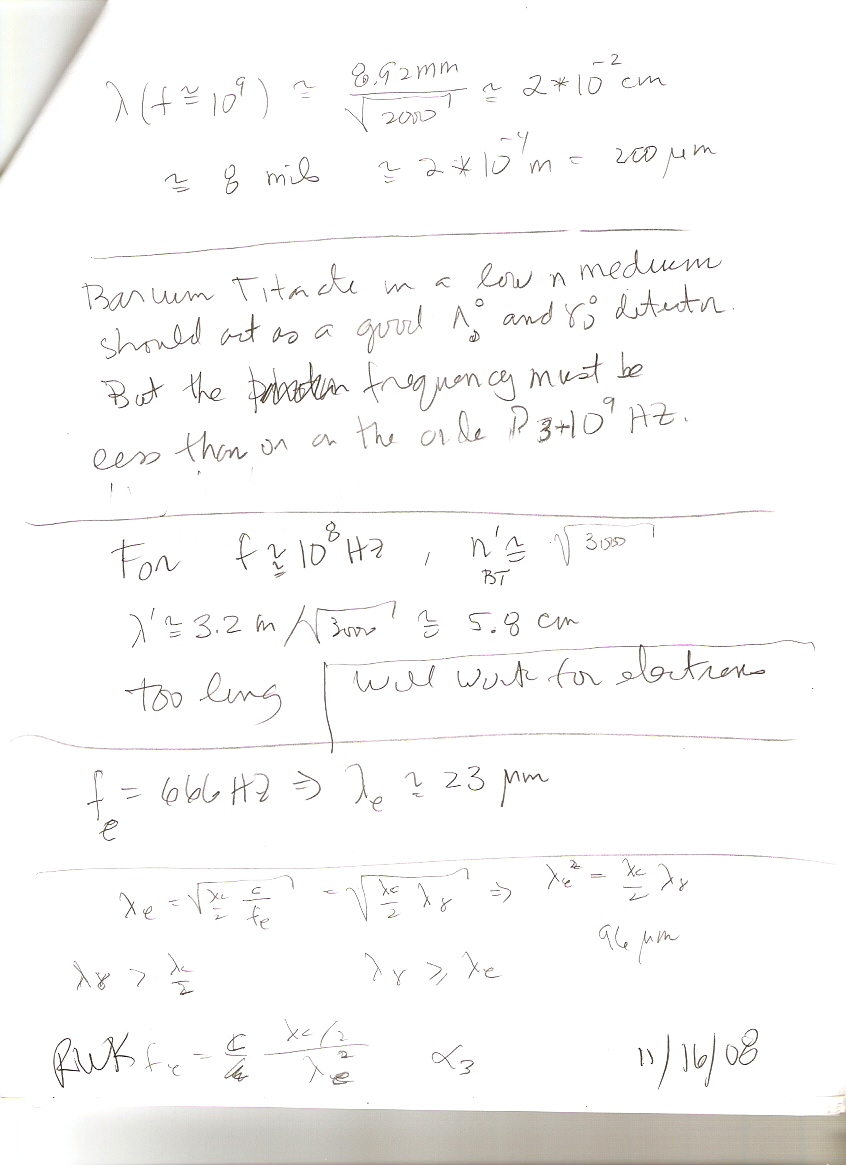 λ(f ≅ 10⁹) ≅ 8.92mm / √2000 ≅ 2*10⁻² cm
≅ 8 mils ≅ 2*10⁻⁴ m = 200 μm
Barium Titanate in a low n medium
should act as a good and detector.
But the frequency must be
less than or on the order 3*10⁹ HZ.
For f ≅ 10⁸ HZ, n'BT ≅ √3000
λ' ≅ 3.2 m / √3000 ≅ 5.8 cm
too long | will work for electrons
fe = 666 HZ ⇒ λe ≅ 23 μm
λe = √(λc/2 c/fe) = √(λc/2 λγ) ⇒ λe² = λc/2 λγ
96 μm
λγ > λc/2 λγ ⩾ λe
RWK fe = c λc/2 / λe² α₃ 11/16/08